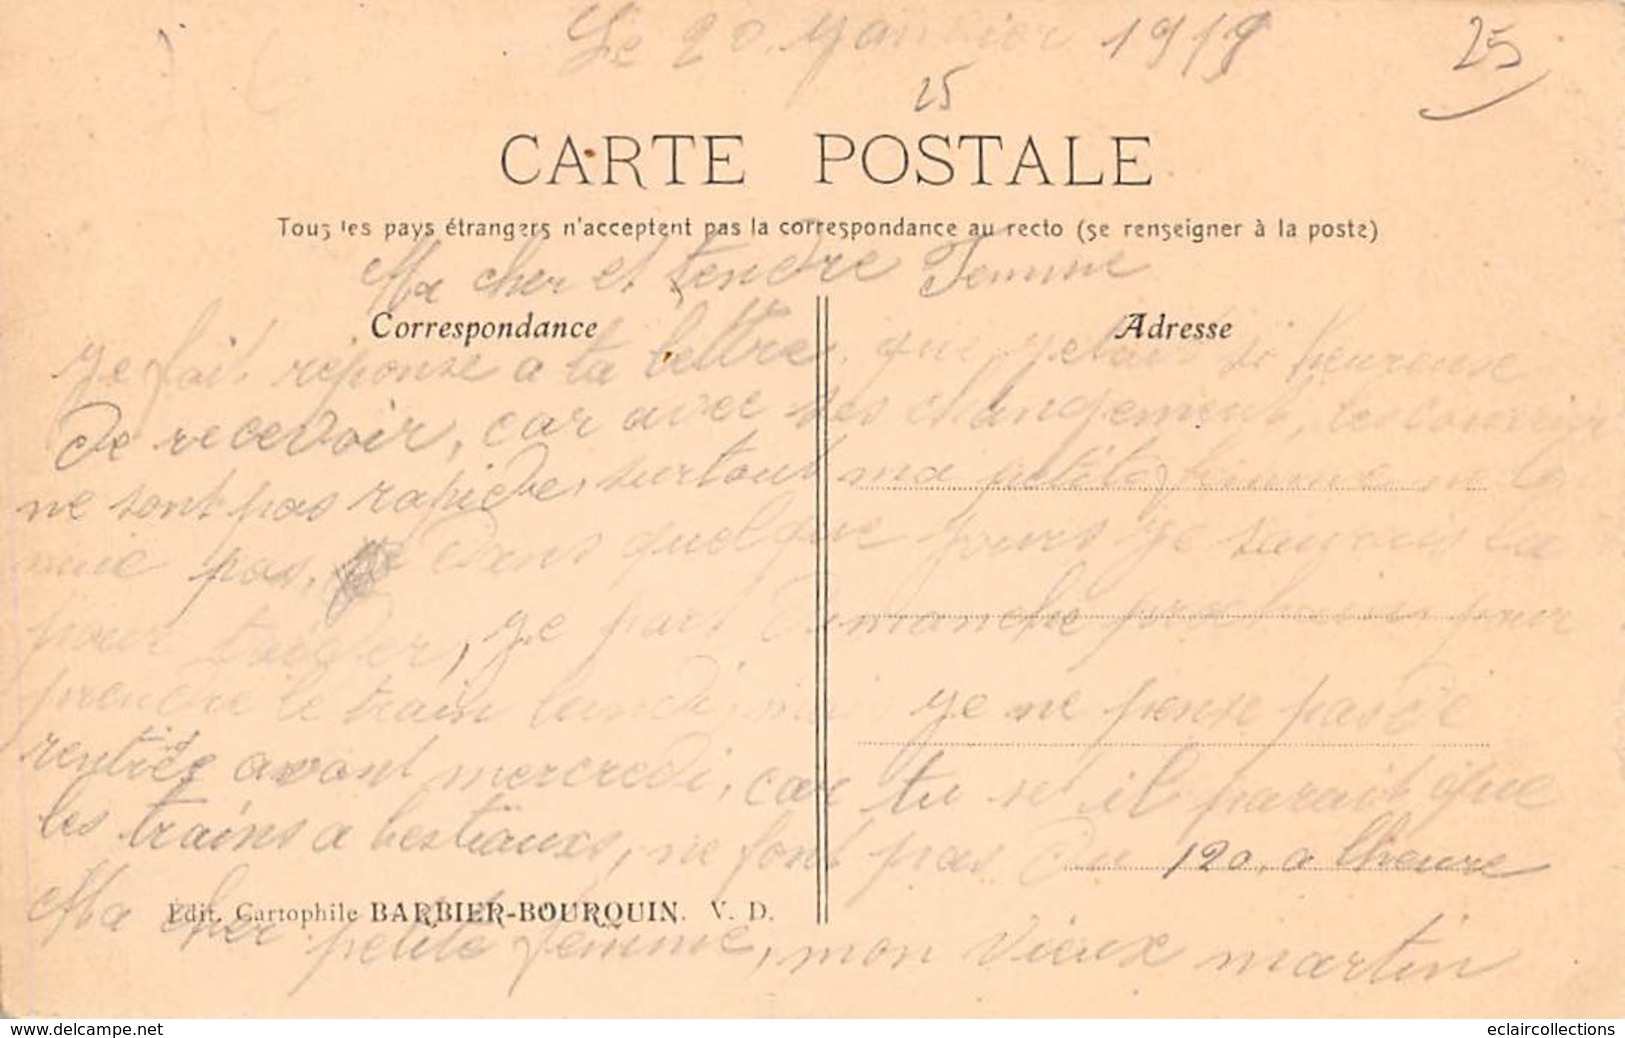 Le 20 Janvier 1919
25
25
CARTE POSTALE
Tous les pays étrangers n'acceptent pas la correspondance au recto (se renseigner à la poste)
Ma cher et tendre Femme
Correspondance
Adresse
Je fait réponse a ta lettre que jetais si heureuse
De recevoir, car avec ses changement, les courrier
ne sont pas rapide, surtout ma petite femme ne
pas, Dans quelque jours je saurais la
pour taider, je pars Dimanche prochain pour
prendre le train lundi, je ne pense pas De
rentrés avant mercredi, car tu s il parait que
les trains a bestiaux, ne font pas Du 120 a lheure
Edit. Cartophile BARBIER-BOURQUIN. V. D.
Ma cher petite femme, mon vieux martin
www.delcampe.net
eclaircollections